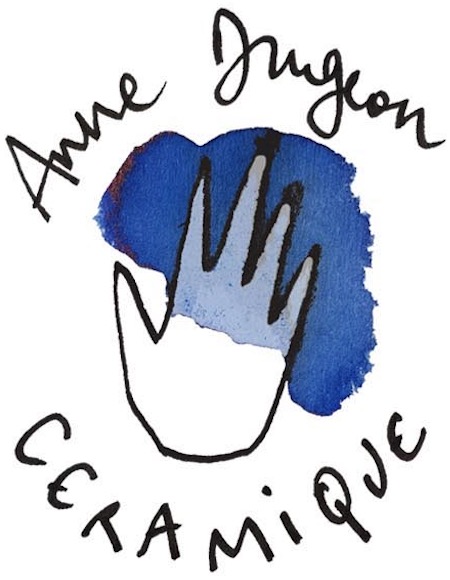 Anne Jugeon
CERAMIQUE